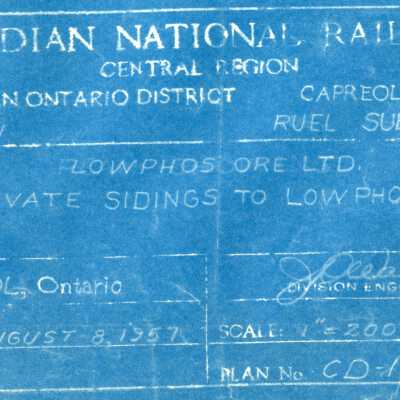 DIAN NATIONAL RAIL
CENTRAL REGION
N ONTARIO DISTRICT CAPREOL
RUEL SUB
LOWPHOS ORE LTD.
VATE SIDINGS TO LOWPHO
OL, Ontario
DIVISION ENG
UGUST 8, 1957 SCALE: 1"=200
PLAN No. CD-1